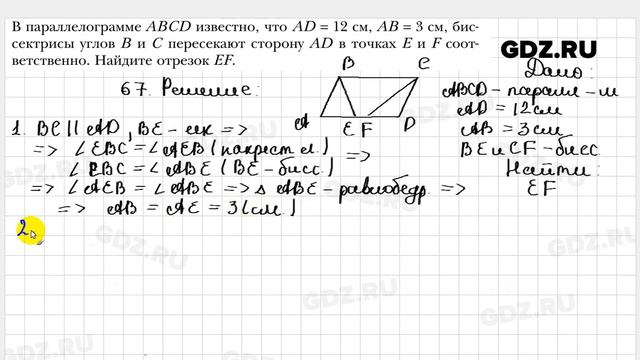 В параллелограмме ABCD известно, что AD = 12 см, AB = 3 см, бис-
сектрисы углов B и C пересекают сторону AD в точках E и F соот-
ветственно. Найдите отрезок EF.
GDZ.RU
67. Решение:
B C
A E F D
Дано:
ABCD - паралл-м
AD = 12 см
AB = 3 см
BE и CF - бисс.
Найти:
EF
1. BC || AD, BE - сек =>
=> ∠EBC = ∠AEB (накрест л.)
∠EBC = ∠ABE (BE - бисс.) =>
=> ∠AEB = ∠ABE => △ ABE - равнобедр. =>
=> AB = AE = 3 (см.)
2.